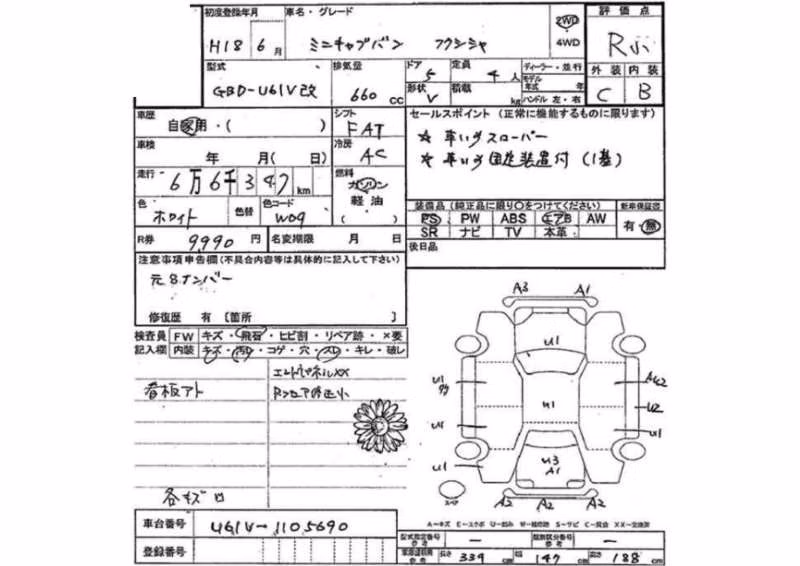 初度登録年月 車名・グレード 2WD 4WD 評価点
H18 6月 ミニキャブバン R小
型式 排気量 ドア 5 定員 4人 ディーラー・並行 外装 内装
GBD-U61V改 660cc 形状 V 積載 kg モデル年式 年 ハンドル 左・右 C B
車歴 自家用・( ) シフト FAT
セールスポイント (正常に機能するものに限ります)
☆ 車いすスローパー
☆ 車いす固定装置付 (1基)
車検 年 月( 日) 冷房 AC
走行 6万6千347km 燃料 ガソリン 軽油 ( )
色 ホワイト 色替 色コード W09
装備品 (純正品に限り○をつけてください) 新車保証図
PS PW ABS エアB AW 有・無
SR ナビ TV 本革
R券 9,990円 名変期限 月 日
後日品
注意事項申告欄 (不具合内容等は具体的に記入して下さい)
元8ナンバー
修復歴 有 [箇所 ]
検査員 FW キズ・飛石・ヒビ割・リペア跡・×要
記入欄 内装 キズ・汚れ・コゲ・穴・スレ・キレ・破し
エンドパネルXX
看板アト
各キズ凹
A3 A1
U1
U1 U1 AU2
U2
U1 U1
U1 U3 A1
スペア A2 A2 A2
A-キズ E-エクボ U-凹み W-補修跡 S-サビ C-腐食 XX-交換済
車台番号 U61V-1105690
型式指定番号 参考 ー 類別区分番号 参考 ー
登録番号
車庫証明用 参考 長さ 339cm 幅 147cm 高さ 188cm